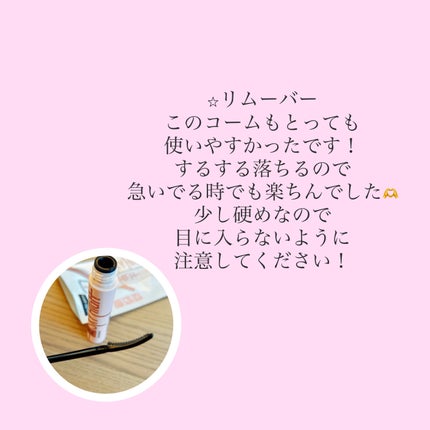 ☆リムーバー
このコームもとっても
使いやすかったです！
するする落ちるので
急いでる時でも楽ちんでした🫶
少し硬めなので
目に入らないように
注意してください！